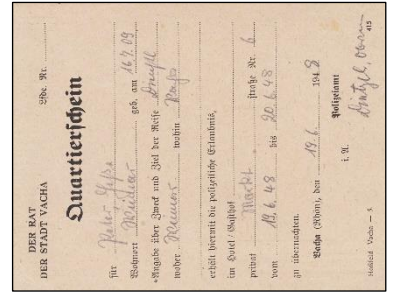 DER RAT
DER STADT VACHA
Lfde. Nr.
Quartierschein
für Peter
Wohnort Weimar geb. am 16.7.09
Angabe über Zweck und Ziel der Reise
woher Weimar wohin
erhält hiermit die polizeiliche Erlaubnis,
im Hotel / Gasthof
privat Markt straße Nr. 6
vom 19.6.48 bis 20.6.48
zu übernachten.
Vacha (Rhön), den 19.6. 1948
Polizeiamt
i. A.
Hohlfeld Vacha — 5. 415